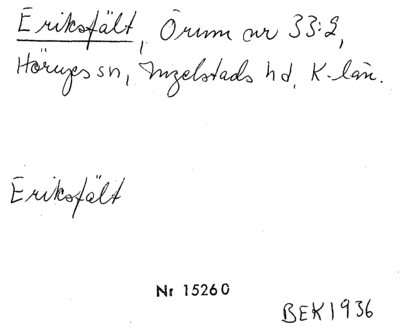 Eriksfält, Örum nr 33:2,
Höryps sn, Ingelstads hd, K-län.
Eriksfält
Nr 15260
BEK 1936